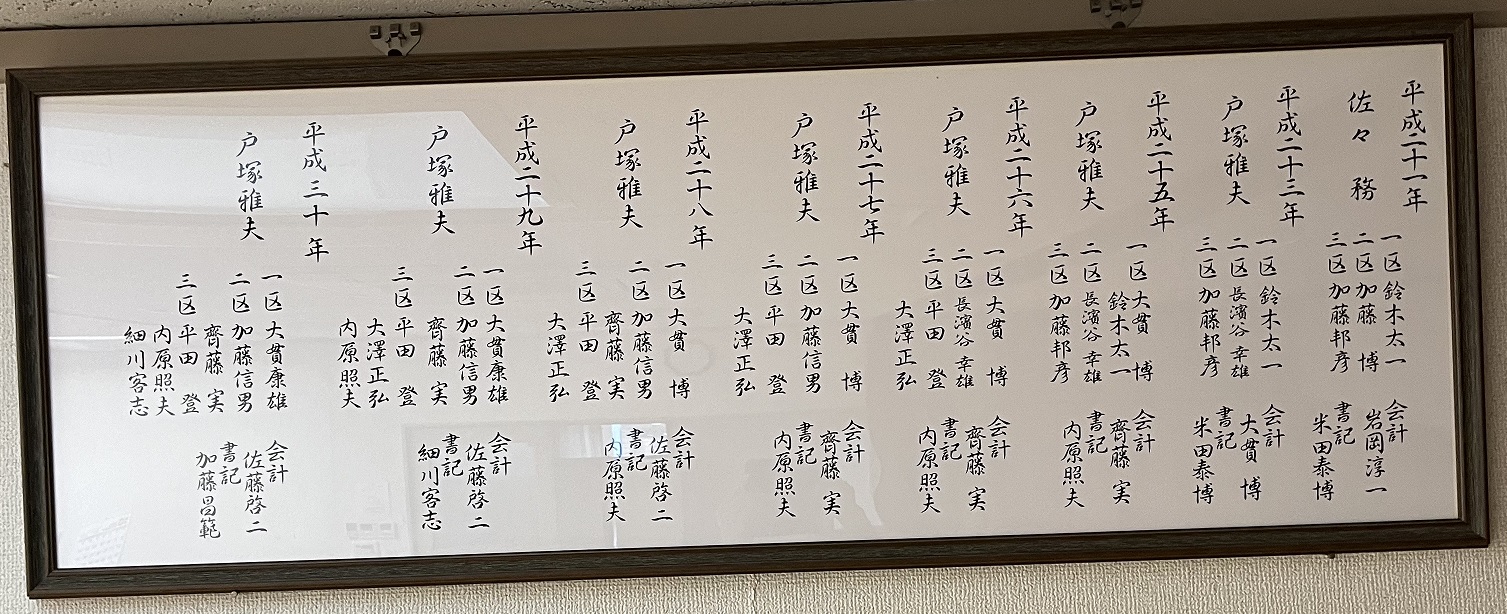 平成二十一年
佐々務
一区 鈴木太一
二区 加藤 博
三区 加藤邦彦
会計
岩岡淳一
書記
米田泰博
平成二十三年
戸塚雅夫
一区 鈴木太一
二区 長濱谷幸雄
三区 加藤邦彦
会計
大貫 博
書記
米田泰博
平成二十五年
戸塚雅夫
一区 大貫 博
鈴木太一
二区 長濱谷幸雄
三区 加藤邦彦
会計
齊藤 実
書記
内原照夫
平成二十六年
戸塚雅夫
一区 大貫 博
二区 長濱谷幸雄
三区 平田 登
大澤正弘
会計
齊藤 実
書記
内原照夫
平成二十七年
戸塚雅夫
一区 大貫 博
二区 加藤信男
三区 平田 登
大澤正弘
会計
齊藤 実
書記
内原照夫
平成二十八年
戸塚雅夫
一区 大貫 博
二区 加藤信男
三区 平田 登
大澤正弘
会計
佐藤啓二
書記
内原照夫
平成二十九年
戸塚雅夫
一区 大貫康雄
二区 加藤信男
齊藤 実
三区 平田 登
大澤正弘
内原照夫
会計
佐藤啓二
書記
細川客志
平成三十年
戸塚雅夫
一区 大貫康雄
二区 加藤信男
齊藤 実
三区 平田 登
内原照夫
細川客志
会計
佐藤啓二
書記
加藤昌範